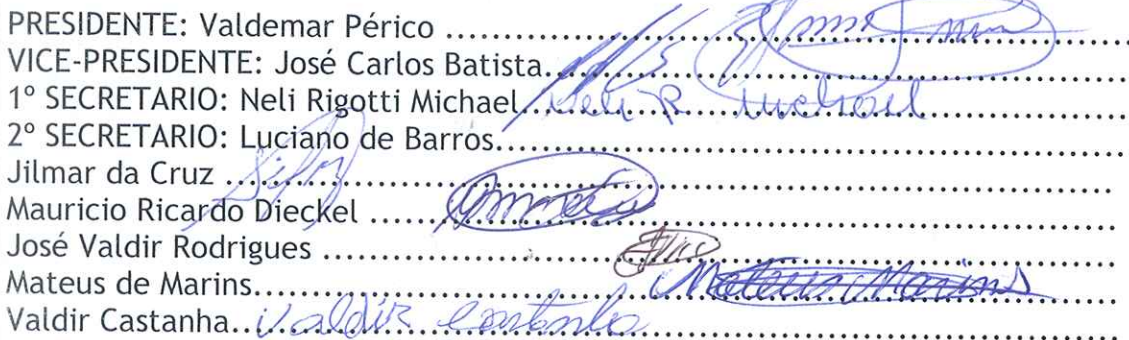 PRESIDENTE: Valdemar Périco ..........
VICE-PRESIDENTE: José Carlos Batista..........
1º SECRETARIO: Neli Rigotti Michael.......... Neli R Michael
2º SECRETARIO: Luciano de Barros..........
Jilmar da Cruz ..........
Mauricio Ricardo Dieckel ..........
José Valdir Rodrigues ..........
Mateus de Marins.......... Mateus Marins
Valdir Castanha.......... Valdir Castanha